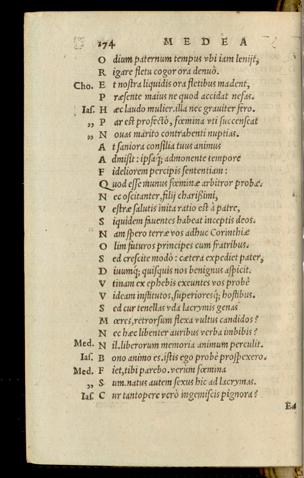 174 MEDEA
O dium paternum tempus vbi iam leniſt,
R igare fletu cogor ora denuò.
Cho. E t noſtra liquidis ora fletibus madent,
P ræſente maius ne quod accidat nefas.
Iaſ. H æc laudo mulier. illa nec grauiter fero.
„ P ar eſt profectò, fœmina vti ſuccenſeat
„ N ouas marito contrahenti nuptias.
A t ſaniora conſilia tuus animus
A dmiſit: ipſaq; admonente tempore
F ideliorem percipis ſententiam:
Q uod eſſe munus fœminæ arbitror probæ.
N ec oſcitanter, filij chariſſimi,
V eſtræ ſalutis inita ratio eſt à patre,
S iquidem fauentes habeat inceptis deos.
N am ſpero terræ vos adhuc Corinthiæ
O lim futuros principes cum fratribus.
S ed creſcite modò: cætera expediet pater,
D iuumq; quiſquis nos benignus aſpicit.
V tinam ex ephebis exeuntes vos probè
V ideam inſtitutos, ſuperioresq; hoſtibus.
S ed cur tenellas vda lacrymis genas
M œres, retrorſum flexa vultus candidos?
N ec hæc libenter auribus verba imbibis?
Med. N il. liberorum memoria animum perculit.
Iaſ. B ono animo es. iſtis ego probè proſpexero.
Med. F iet, tibi parebo. verùm fœmina
„ S um. natus autem ſexus hic ad lacrymas.
Iaſ. C ur tantopere verò ingemiſcis pignora?
Ed